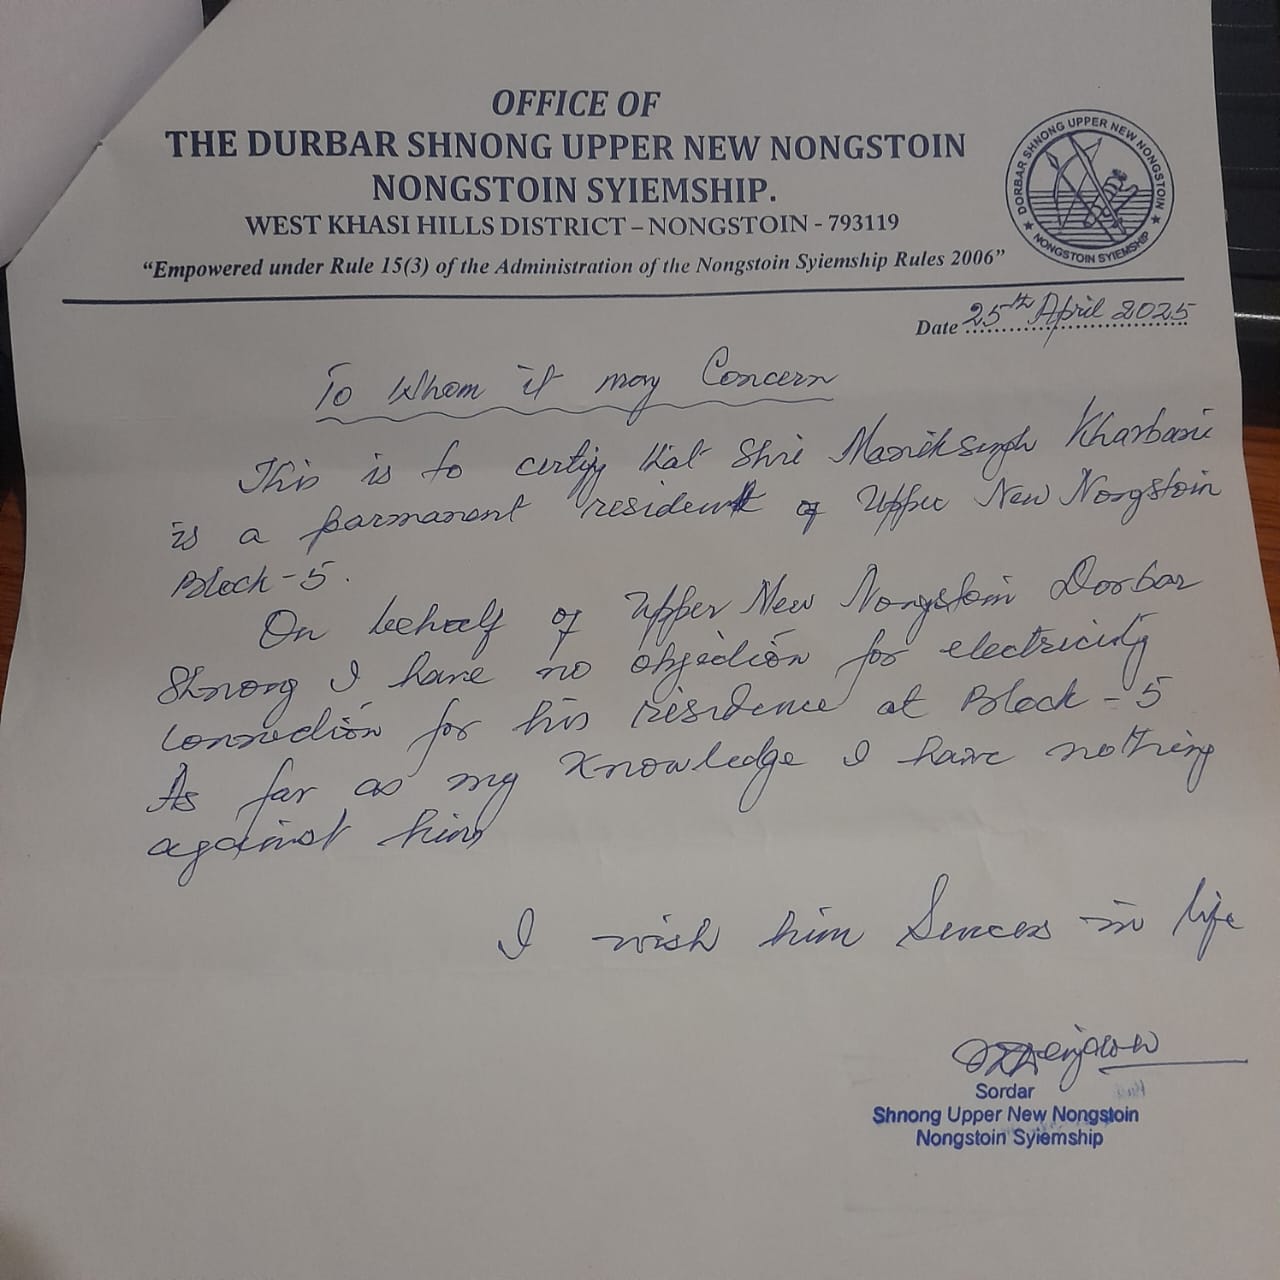 OFFICE OF
THE DURBAR SHNONG UPPER NEW NONGSTOIN
NONGSTOIN SYIEMSHIP.
WEST KHASI HILLS DISTRICT – NONGSTOIN - 793119
“Empowered under Rule 15(3) of the Administration of the Nongstoin Syiemship Rules 2006”
DORBAR SHNONG UPPER NEW NONGSTOIN
★ NONGSTOIN SYIEMSHIP ★
Date 25th April 2025
To Whom it may Concern
This is to certify that Shri Maniksingh Kharbani
is a parmanant resident of Upper New Nongstoin
Block - 5.
On behalf of Upper New Nongstoin Dorbar
Shnong I have no objection for electricity
connection for his residence at Block - 5
As far as my knowledge I have nothing
against him
I wish him Success in life
Sordar
Shnong Upper New Nongstoin
Nongstoin Syiemship